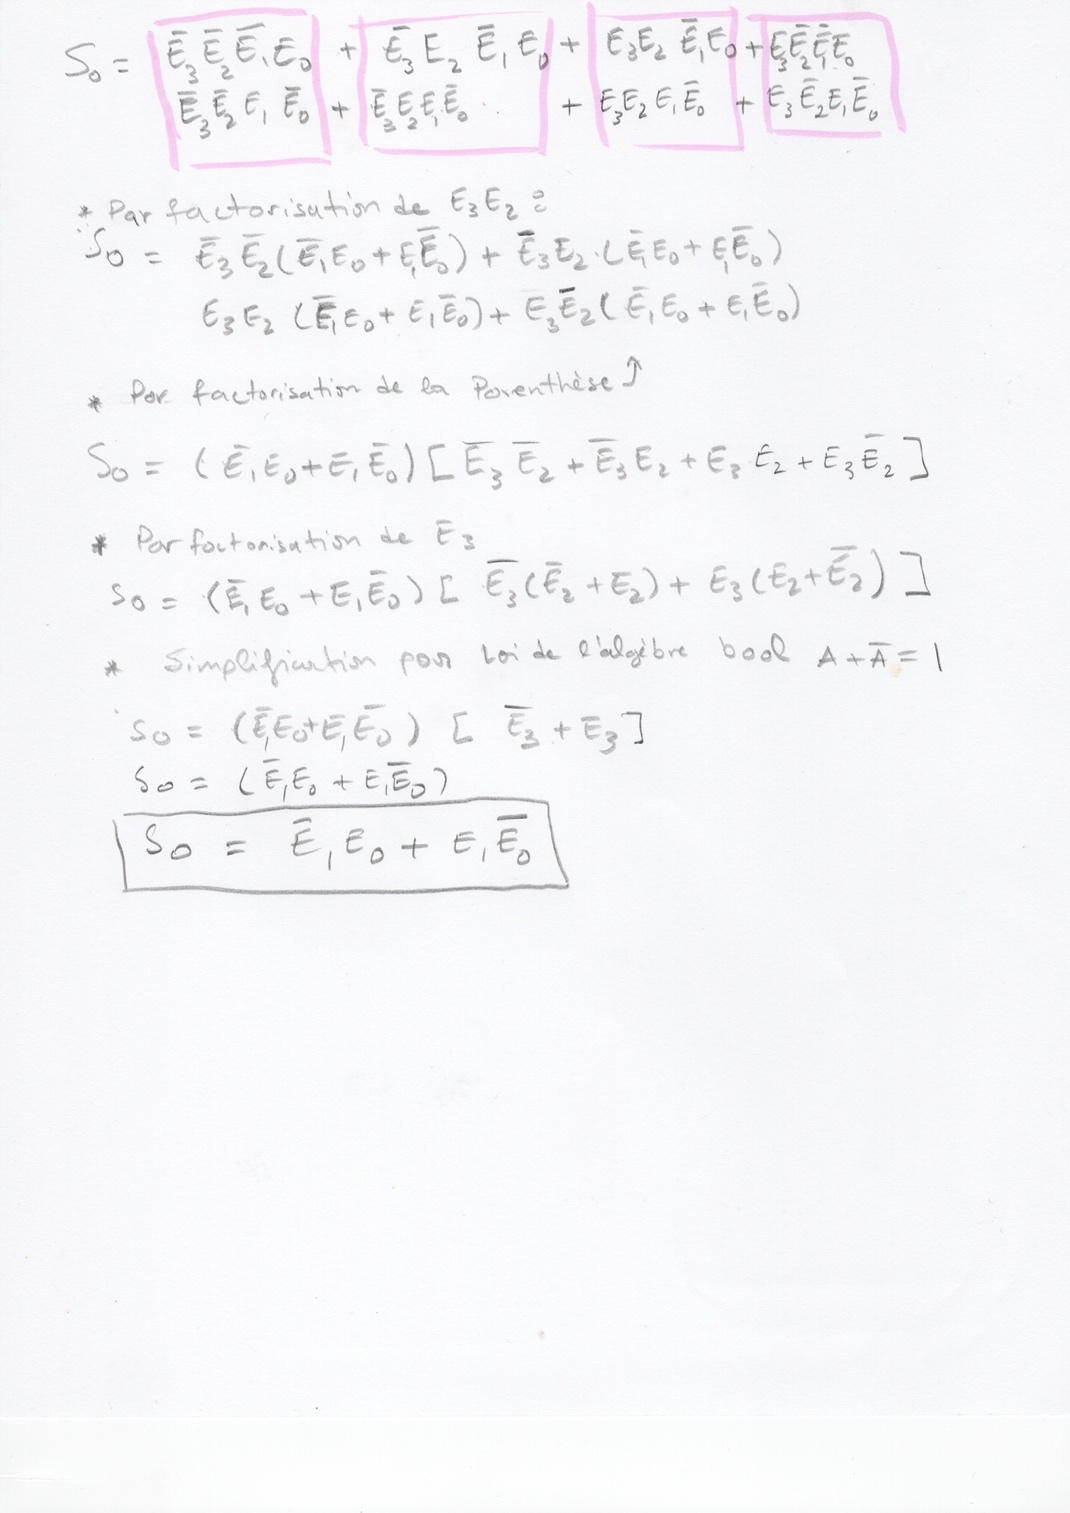 S₀ = Ē₃ Ē₂ Ē₁ E₀ + Ē₃ E₂ Ē₁ E₀ + E₃E₂ Ē₁E₀ + E₃Ē₂Ē₁E₀
Ē₃Ē₂ E₁ Ē₀ + Ē₃E₂E₁Ē₀ + E₃E₂ E₁Ē₀ + E₃ Ē₂E₁Ē₀
* Par factorisation de E₃E₂ :
S₀ = Ē₃ Ē₂(Ē₁E₀ + E₁Ē₀) + Ē₃E₂.(Ē₁E₀ + E₁Ē₀)
E₃E₂ (Ē₁E₀ + E₁Ē₀) + E₃Ē₂(Ē₁E₀ + E₁Ē₀)
* Par factorisation de la Parenthèse ↑
S₀ = (Ē₁E₀ + E₁Ē₀) [Ē₃ Ē₂ + Ē₃E₂ + E₃ E₂ + E₃Ē₂]
* Par factorisation de E₃
S₀ = (Ē₁E₀ + E₁Ē₀) [ Ē₃(Ē₂ + E₂) + E₃(E₂ + Ē₂) ]
* Simplification pour Loi de l'algèbre bool A + Ā = 1
S₀ = (Ē₁E₀ + E₁Ē₀) [ Ē₃ + E₃]
S₀ = (Ē₁E₀ + E₁Ē₀)
S₀ = Ē₁E₀ + E₁Ē₀